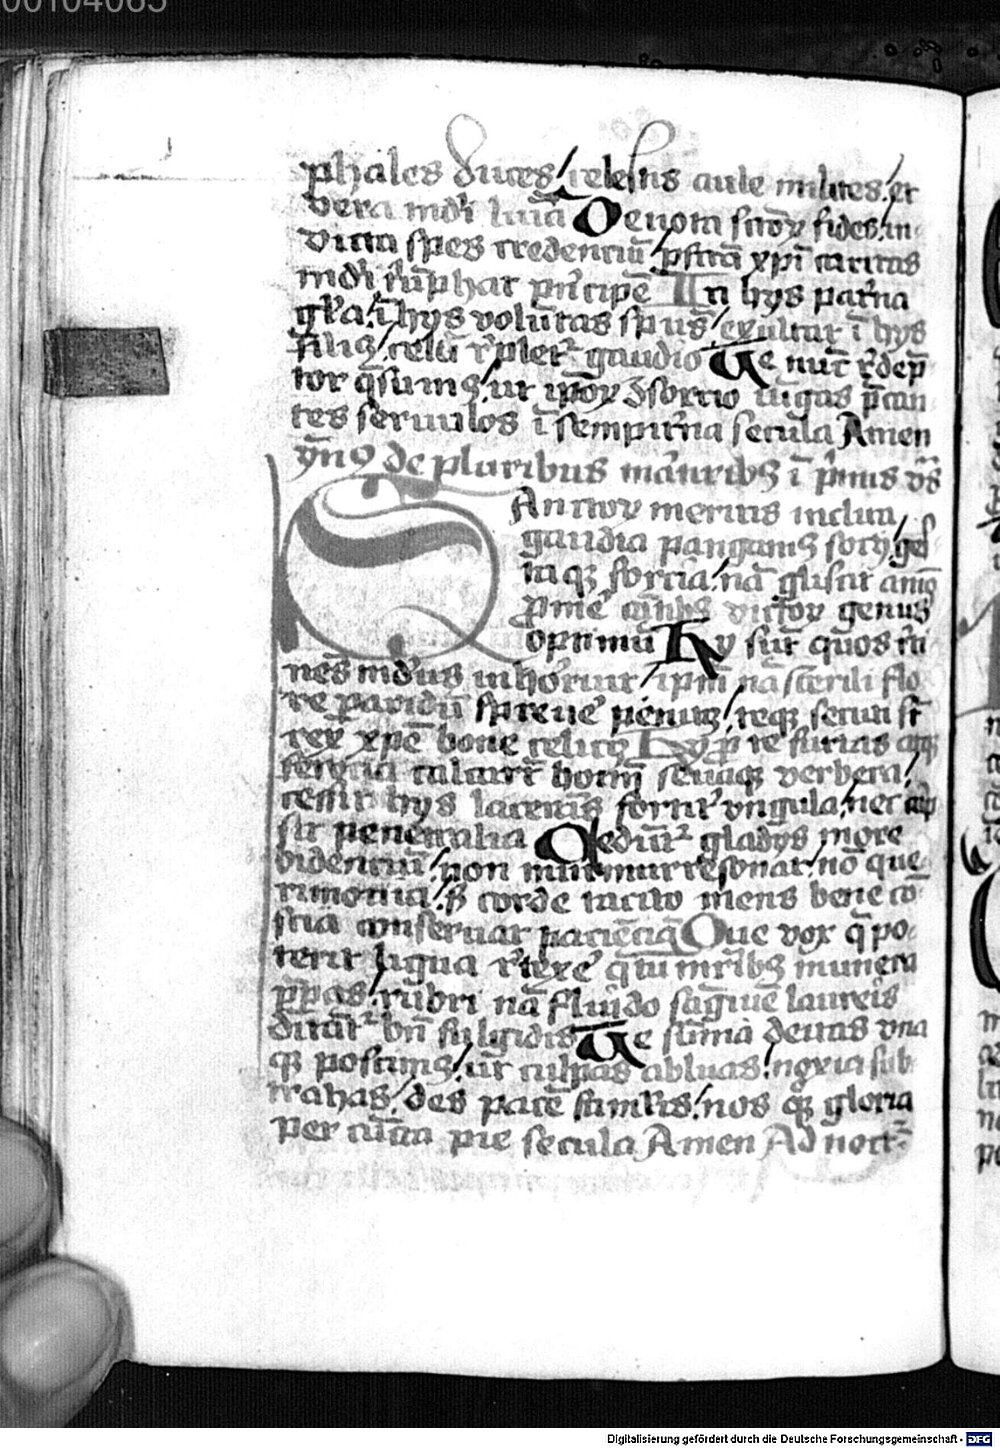 00104065
phales duces / celestis aule milites / et
vera mdi lumīa Deuota sctoꝝ fides / in
uicta spes credenciū / pfcā xp̄i caritas
mdi triūphat prīcipē In hys patrna
glia / ī hys volūtas spūs / exultat ī hys
filiꝰ / celū rpletᷣ gaudio Te nūc rdēp
tor q̄sumꝰ / ut ip̄oꝝ ɔsorcio iūgas p̄can
tes seruulos ī sempitrna secula Amen
ymꝰ de pluribus mr̄iribꝫ ī prīmis vs̄
SAnctoꝝ meritis inclita
gaudia pangamꝰ socij / ges
taqꝫ forcia / nā gliscit animꝰ
prome᷑ cātibꝫ victoꝝ genus
optimū Hy sūt quos re
nēs mdus inhorruit / ipm̄ nā sterili flo
re paridū spreue᷑ penitꝰ / teqꝫ secuti st̄
rex xp̄e bone celitꝰ Hy p te furias atqꝫ
ferocia calcarūt homī seuaqꝫ verbera /
cessit hys laceris fortit᷑ vngula / nec carp
sit penetralia Ceduntᷣ gladys more
bidenciū / non murmur resonat / nō que
rimonia / sꝫ corde tacito mens bene cō
scia conseruat pacienciā Que vox q̄ po
terit ligua rtexe᷑ q̄ tu mr̄ibꝫ munera
p̄pas / rubri nā fluido sāgīne laureis
ditātᷣ bn̄ fulgidis Te sūma deitas vna
qꝫ poscimꝰ / ut culpas abluas / noxia sub
trahas / des pacē famlis / nos qꝫ gloria
per cūcta pie secula Amen Ad noctᷣ
Digitalisierung gefördert durch die Deutsche Forschungsgemeinschaft - DFG